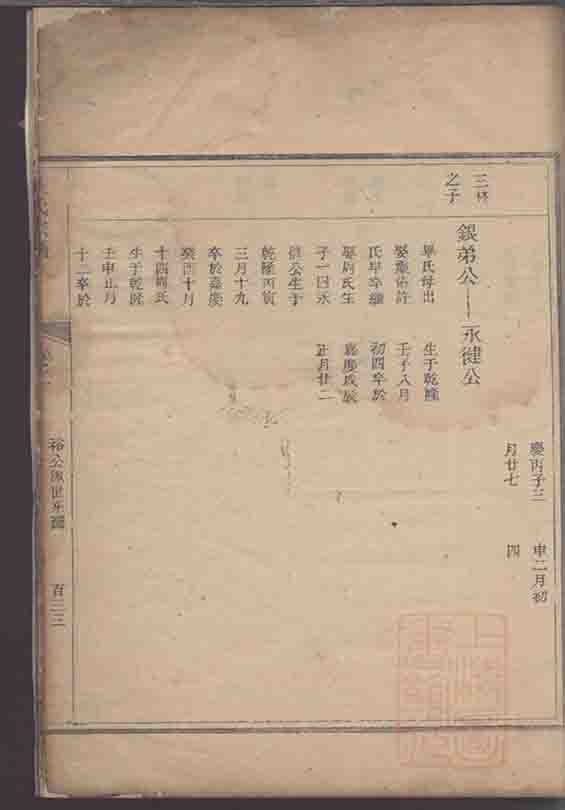 慶丙子三　申二月初
月廿七　四
三林
之子
銀弟公——永健公
畢氏母出　生于乾隆
娶戴佑許　壬子八月
氏早卒繼　初四卒於
娶周氏生　嘉慶戊辰
子一曰永　正月廿二
健公生于
乾隆丙寅
三月十九
卒於嘉慶
癸酉十月
十四周氏
生于乾隆
壬申正月
十二卒於
裕公派世系圖　百三三